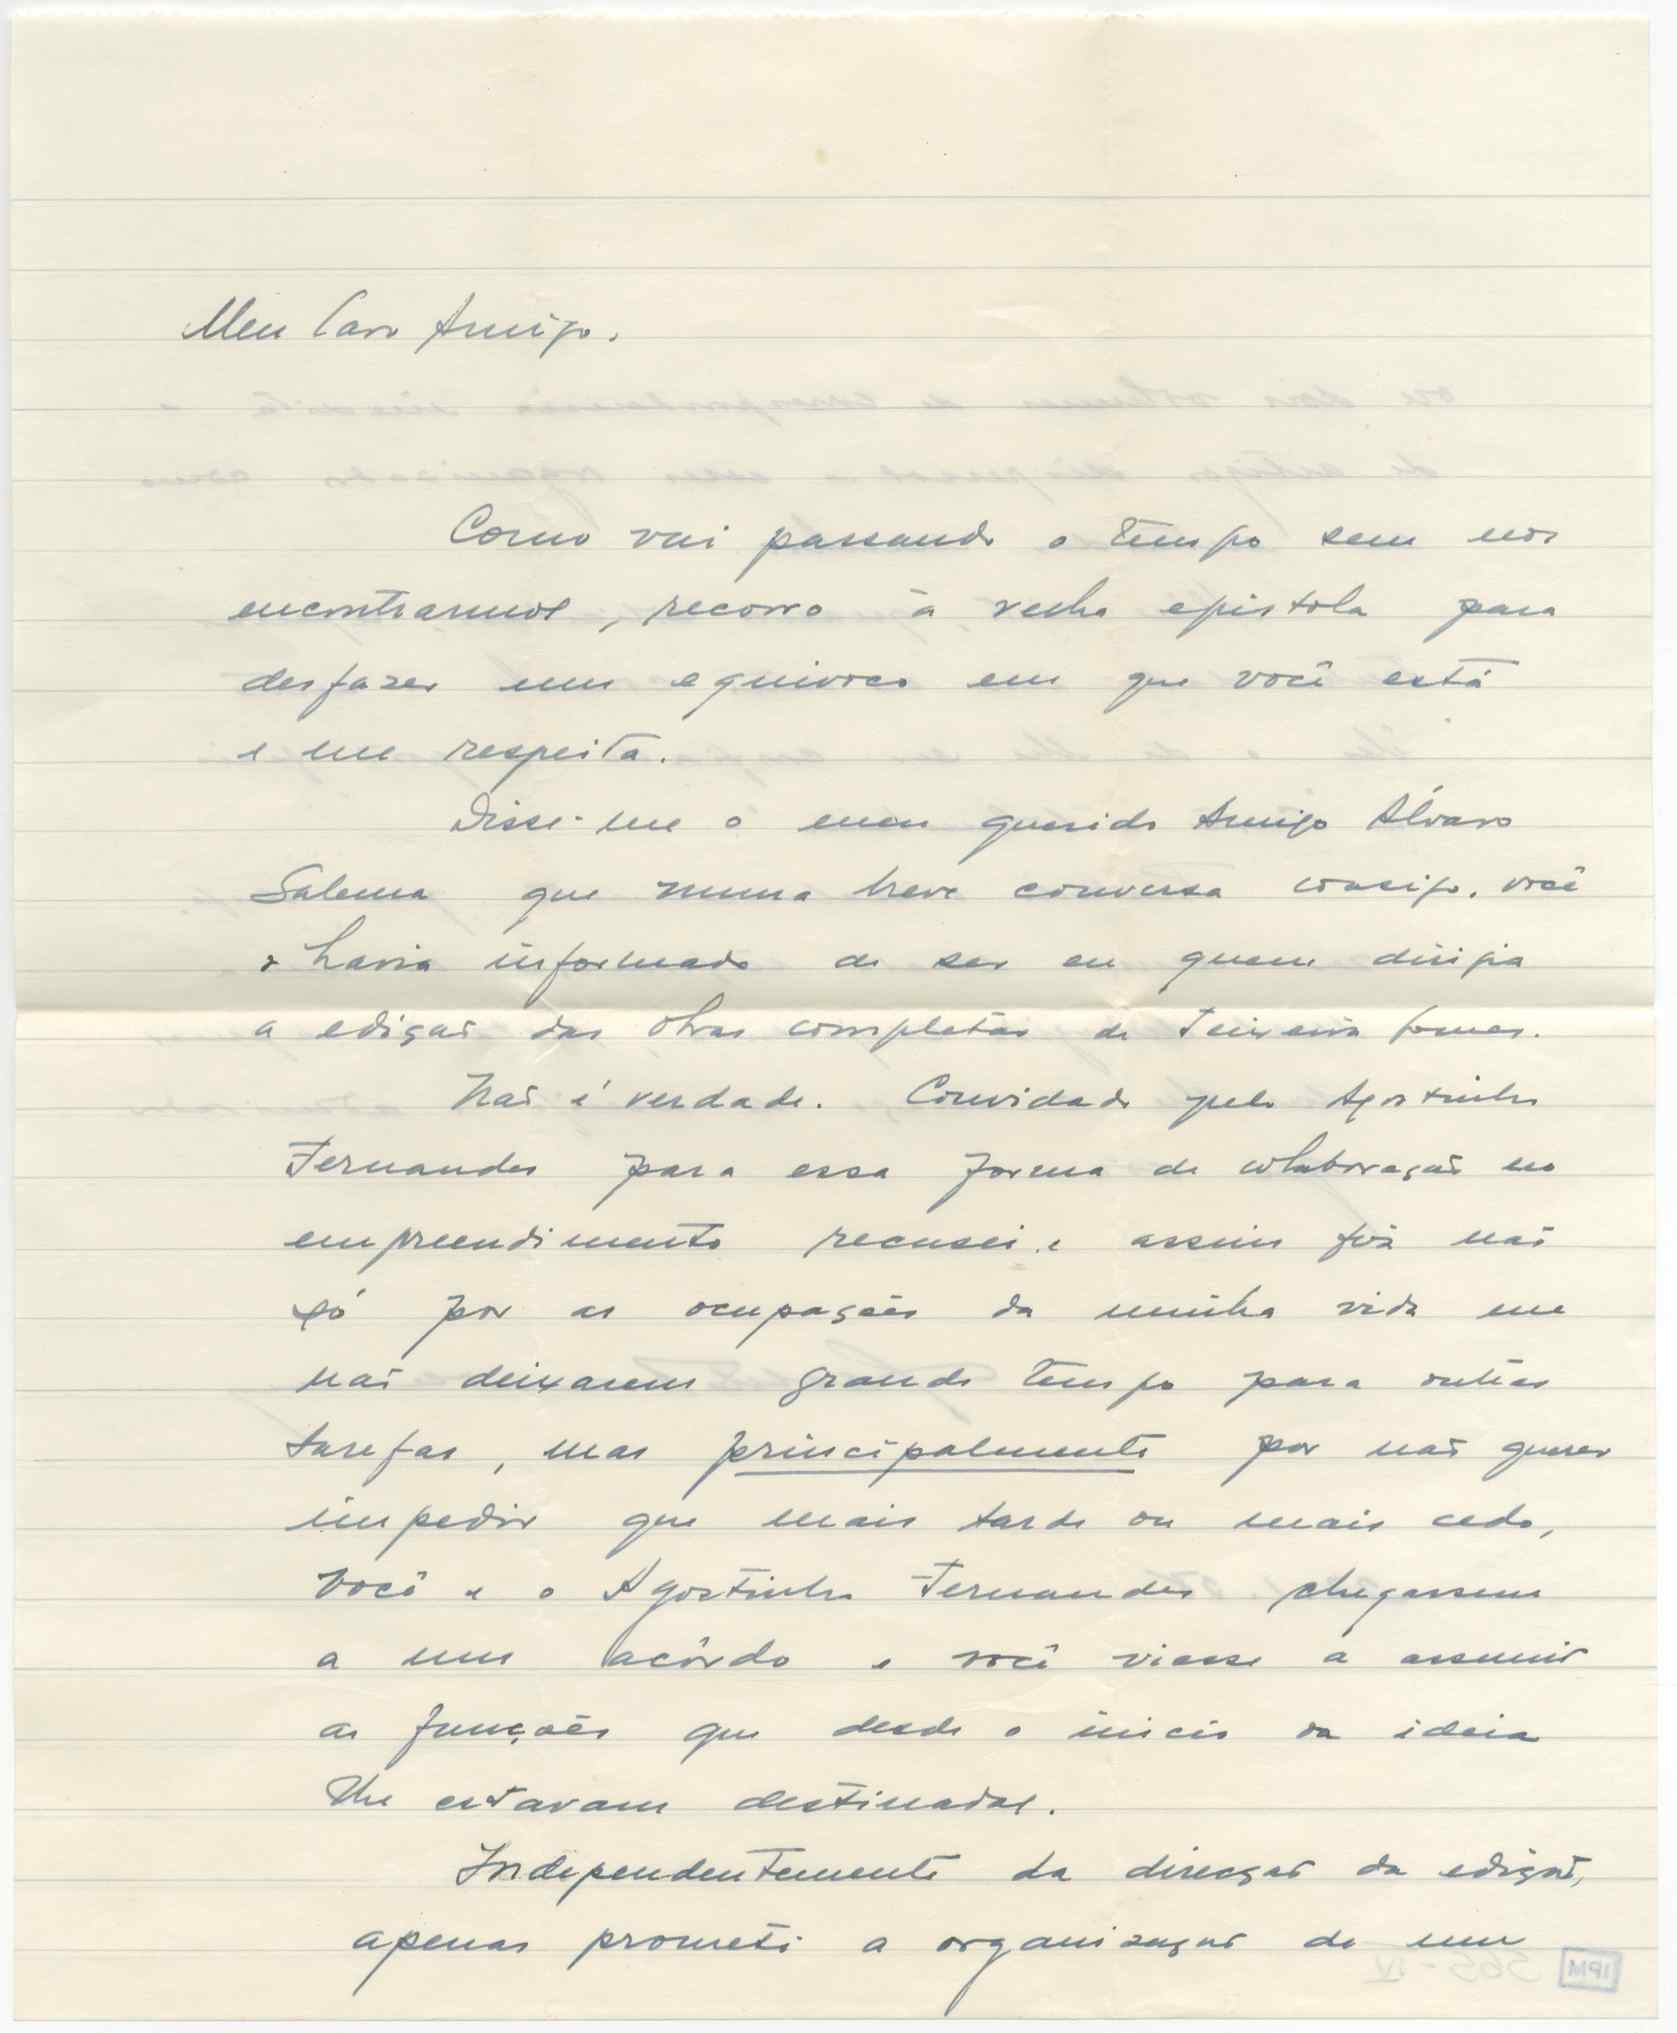 Meu Caro Amigo.
Como vai passando o tempo sem nos
encontrarmos, recorro à velha epistola para
desfazer um equivoco em que você está
e me respeita.
Disse-me o meu querido Amigo Álvaro
Salema que numa breve conversa consigo, você
o havia informado de ser eu quem dirigia
a edição das obras completas de Teixeira Gomes.
Não é verdade. Convidado pelo Agostinho
Fernandes para essa forma de colaboração no
empreendimento recusei, e assim fiz não
só por as ocupações da minha vida me
não deixarem grande tempo para outras
tarefas, mas principalmente por não querer
impedir que mais tarde ou mais cedo,
você e o Agostinho Fernandes chegassem
a um acôrdo e você viesse a assumir
as funções que desde o inicio da ideia
lhe estavam destinadas.
Independentemente da direcção da edição,
apenas prometi a organização de um
IPM 565-IV